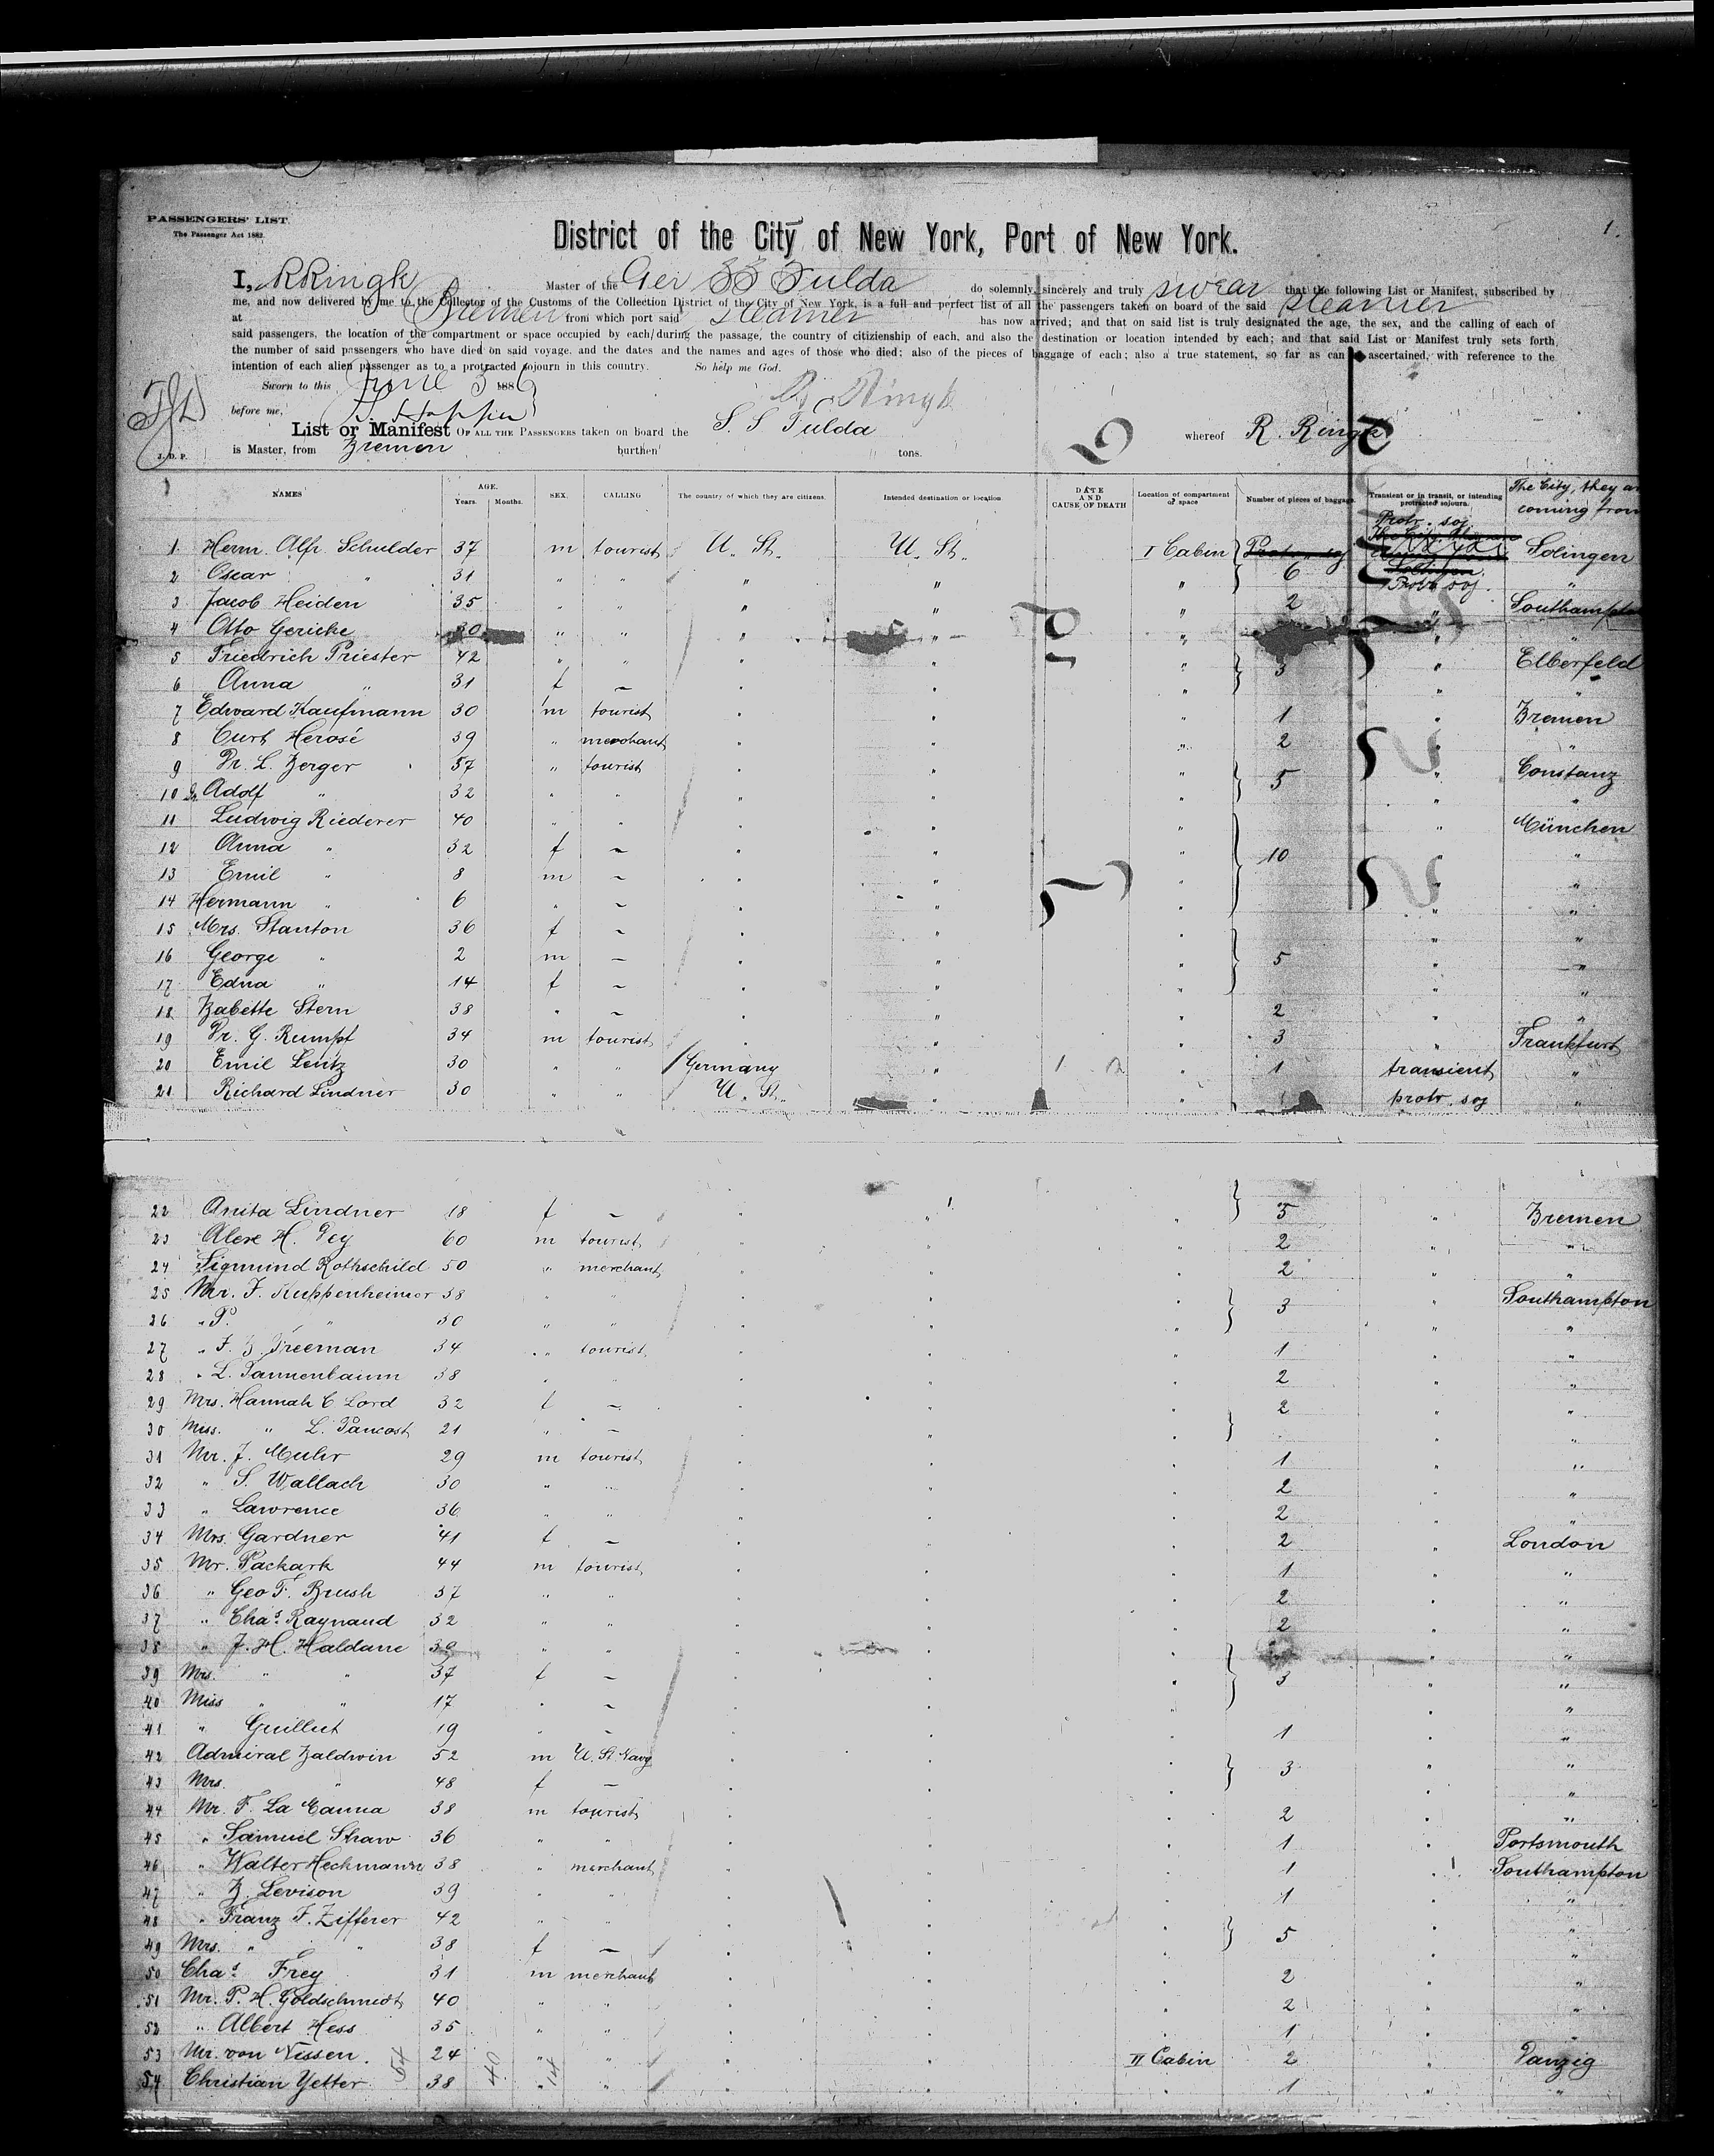 PASSENGERS' LIST.
The Passenger Act 1882.
District of the City of New York, Port of New York.
1.
I, R Ringk Master of the Ger SS Fulda do solemnly, sincerely and truly swear that the following List or Manifest, subscribed by
me, and now delivered by me to the Collector of the Customs of the Collection District of the City of New York, is a full and perfect list of all the passengers taken on board of the said steamer
at Bremen from which port said steamer has now arrived; and that on said list is truly designated the age, the sex, and the calling of each of
said passengers, the location of the compartment or space occupied by each during the passage, the country of citizienship of each, and also the destination or location intended by each; and that said List or Manifest truly sets forth
the number of said passengers who have died on said voyage, and the dates and the names and ages of those who died; also of the pieces of baggage of each; also a true statement, so far as can be ascertained, with reference to the
intention of each alien passenger as to a protracted sojourn in this country. So help me God.
Sworn to this June 3 1886 R. Ringk
before me,
List or Manifest OF ALL THE PASSENGERS taken on board the S. S Fulda whereof R. Ringk
J. D. P. is Master, from Bremen burthen tons.
NAMES AGE. Years. Months. SEX. CALLING The country of which they are citizens. Intended destination or location. DATE AND CAUSE OF DEATH Location of compartment or space Number of pieces of baggage. Transient or in transit, or intending protracted sojourn. The City, they are coming from
1 Herm. Alfr. Schulder 37 m tourist U. St. U. St. I Cabin Protr. soj Solingen
2 Oscar " 31 " " " " " 6 Protr. soj. "
3 Jacob Heiden 35 " " " " " 2 " Southampton
4 Otto Gericke 30 " " " " " " "
5 Friedrich Priester 42 " " " " " 3 " Elberfeld
6 Anna " 31 f — " " " " "
7 Edward Kaufmann 30 m tourist " " " 1 " Bremen
8 Curt Herosé 39 " merchant " " " 2 " "
9 Dr. L. Berger 57 " tourist " " " 5 " Constanz
10 Dr. Adolf " 32 " " " " " " "
11 Ludwig Riederer 40 " " " " " " München
12 Anna " 32 f — " " " 10 " "
13 Emil " 8 m — " " " " "
14 Hermann " 6 " — " " " " "
15 Mrs. Stanton 36 f — " " " " "
16 George " 2 m — " " " 5 " "
17 Edna " 14 f — " " " " "
18 Babette Stern 38 " — " " " 2 " "
19 Dr. G. Rumpf 34 m tourist " " " 3 " Frankfurt
20 Emil Lentz 30 " " Germany " " 1 transient "
21 Richard Lindner 30 " " U. St. " " protr. soj "
22 Anita Lindner 18 f — " " " 5 " Bremen
23 Alexe H. Dey 60 m tourist " " " 2 " "
24 Sigmund Rothschild 50 " merchant " " " 2 " "
25 Mr. F. Kuppenheimer 38 " " " " " 3 " Southampton
26 " P. " 30 " " " " " " "
27 " F. B. Freeman 34 " tourist " " " 1 " "
28 " L. Tannenbaum 38 " " " " " 2 " "
29 Mrs. Hannah C Lord 32 f — " " " 2 " "
30 Miss. " L. Pancost 21 " — " " " " "
31 Mr. J. Muhr 29 m tourist " " " 1 " "
32 " S. Wallach 30 " " " " " 2 " "
33 " Lawrence 36 " " " " " 2 " "
34 Mrs. Gardner 41 f — " " " 2 " London
35 Mr. Packark 44 m tourist " " " 1 " "
36 " Geo F. Brush 37 " " " " " 2 " "
37 " Chas. Raynaud 32 " " " " " 2 " "
38 " J. H. Haldane 39 " " " " " " "
39 Mrs. " " 37 f — " " " 3 " "
40 Miss " " 17 " — " " " " "
41 " Guillut 19 " — " " " 1 " "
42 Admiral Baldwin 52 m U. St. Navy " " " 3 " "
43 Mrs. " 48 f — " " " " "
44 Mr. F. La Canna 38 m tourist " " " 2 " "
45 " Samuel Shaw 36 " " " " " 1 " Portsmouth
46 " Walter Heckmann 38 " merchant " " " 1 " Southampton
47 " B. Levison 39 " " " " " 1 " "
48 " Franz F. Zifferer 42 " " " " " 5 " "
49 Mrs. " " 38 f — " " " " "
50 Chas. Frey 31 m merchant " " " 2 " "
51 Mr. P. H. Goldschmidt 40 " " " " " 2 " "
52 " Albert Hess 35 " " " " " 1 " "
53 Mr. von Nissen. 24 " " " " II Cabin 2 " Danzig
54 Christian Yetter 38 " " " " " 1 " "
54 40 14